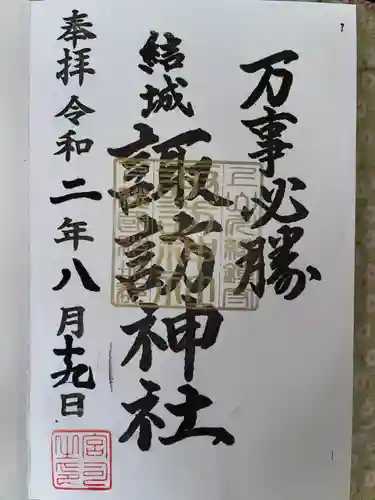 万事必勝
結城
諏訪神社
奉拝令和二年八月十九日
宮司之印